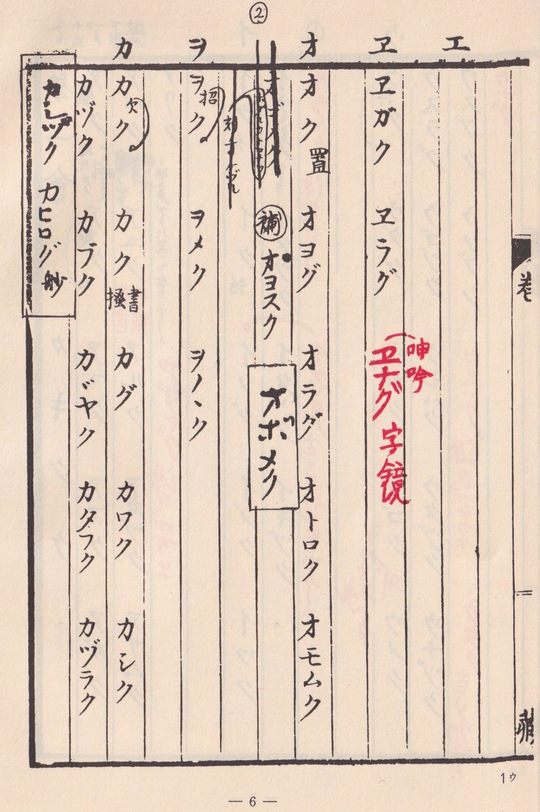 ②
エ
ヱ
ヱガク
ヱラグ
呻吟
ヱナグ 字鏡
オ
オク 置
オヨグ
オラグ
オトロク
オモムク
補
オヨスク
オボメク
ヲ
ヲク 招
ヲメク
ヲノヽク
カ
カク 欠
カク 掻 書
カグ
カワク
カシク
カヅク
カブク
カガヤク
カタフク
カヅラク
カシヅク カヒログ
巻
1ウ
— 6 —